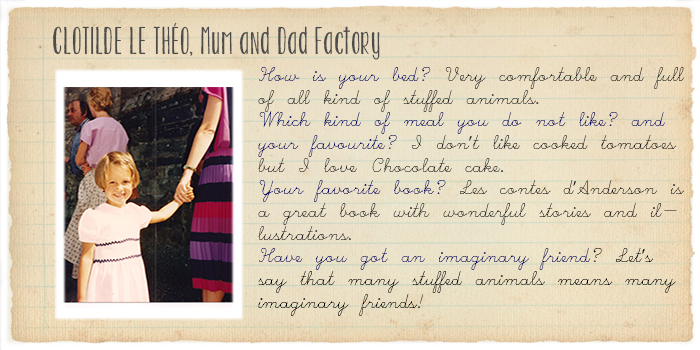 CLOTILDE LE THÉO, Mum and Dad Factory
How is your bed? Very comfortable and full
of all kind of stuffed animals.
Which kind of meal you do not like? and
your favourite? I don't like cooked tomatoes
but I love Chocolate cake.
Your favorite book? Les contes d'Anderson is
a great book with wonderful stories and il-
lustrations.
Have you got an imaginary friend? Let's
say that many stuffed animals means many
imaginary friends!